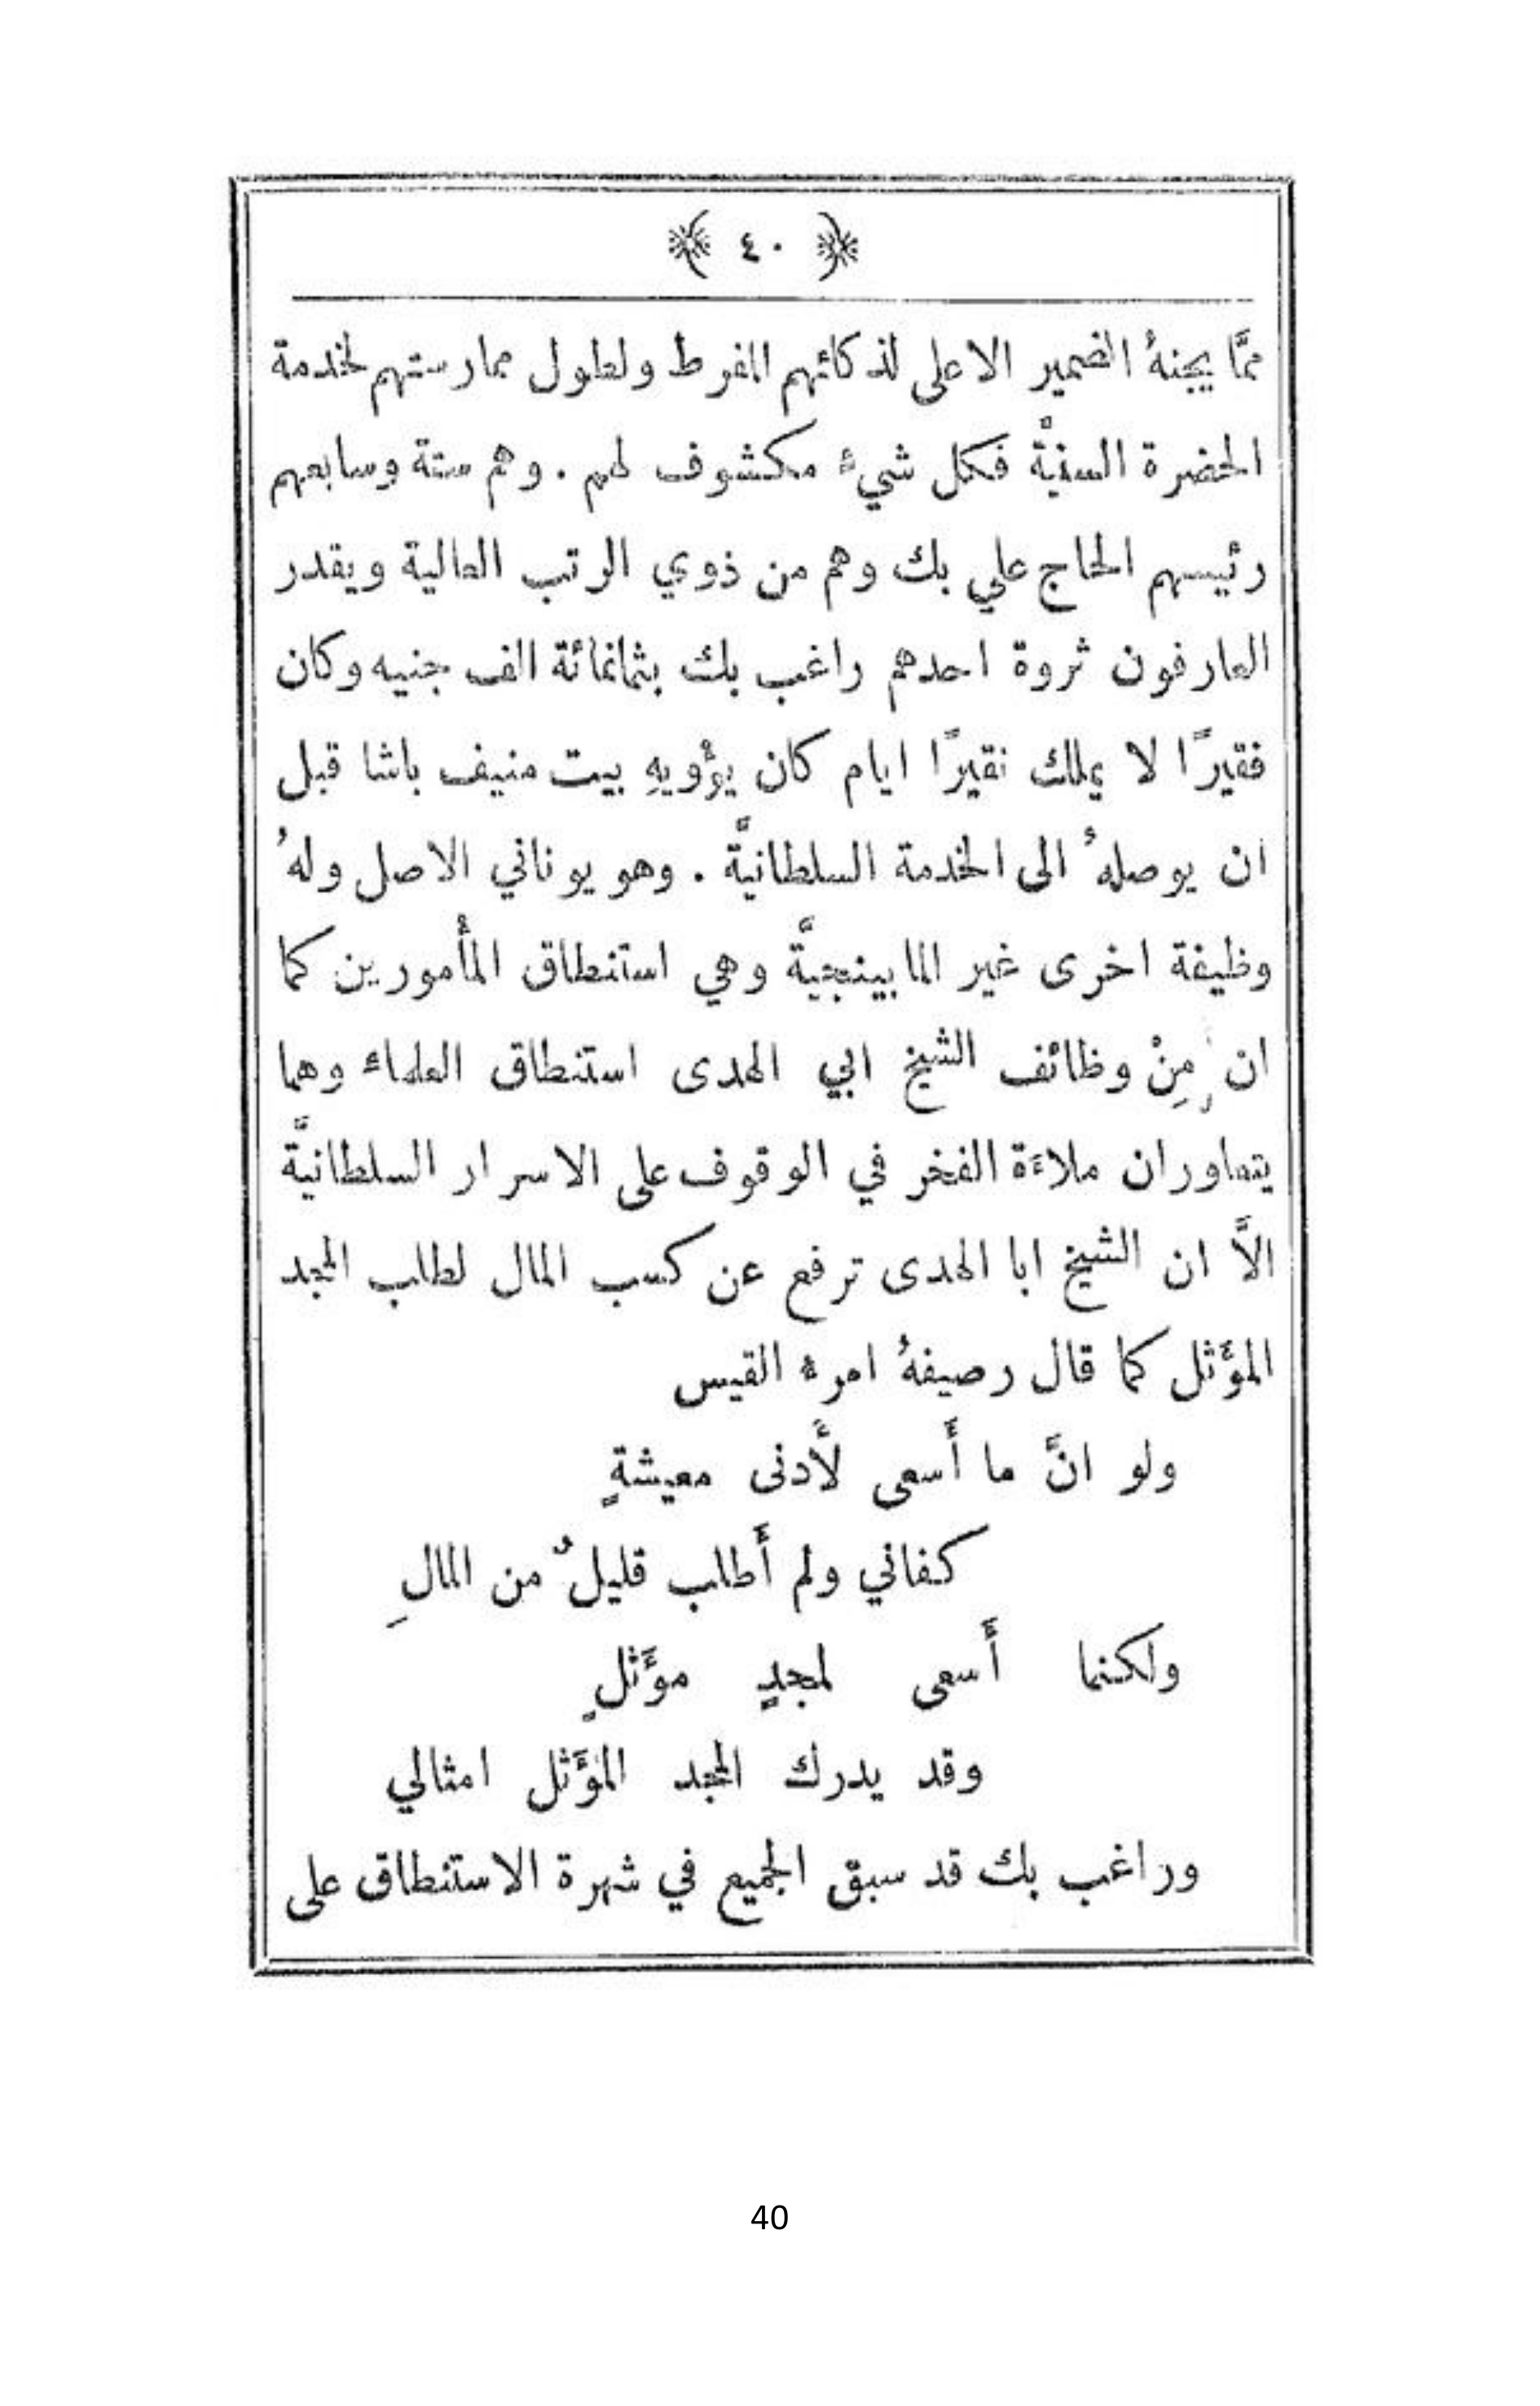 ﴿ ٤٠ ﴾
ممَّا يجنهُ الضمير الاعلى لذكائهم المفرط ولطول ممارستهم لخدمة
الحضرة السنيَّة فكل شيءٍ مكشوف لهم . وهم ستة وسابعهم
رئيسهم الحاج علي بك وهم من ذوي الرتب العالية ويقدر
العارفون ثروة احدهم راغب بك بثمانمائة الف جنيه وكان
فقيرًا لا يملك نقيرًا ايام كان يؤْويهِ بيت منيف باشا قبل
ان يوصلهُ الى الخدمة السلطانيَّة . وهو يوناني الاصل ولهُ
وظيفة اخرى غير المابينجيَّة وهي استنطاق المأْمورين كما
ان مِنْ وظائف الشيخ ابي الهدى استنطاق العلماء وهما
يتعاوران ملاءَة الفخر في الوقوف على الاسرار السلطانيَّة
الاَّ ان الشيخ ابا الهدى ترفع عن كسب المال لطلب المجد
المؤَثل كما قال رصيفهُ امرء القيس
ولو انَّ ما أَسعى لأَدنى معيشةٍ
كفاني ولم أَطلب قليلٌ من المالِ
ولكنما أَسعى لمجدٍ مؤَثلٍ
وقد يدرك المجد المؤَثل امثالي
وراغب بك قد سبق الجميع في شهرة الاستنطاق على
40